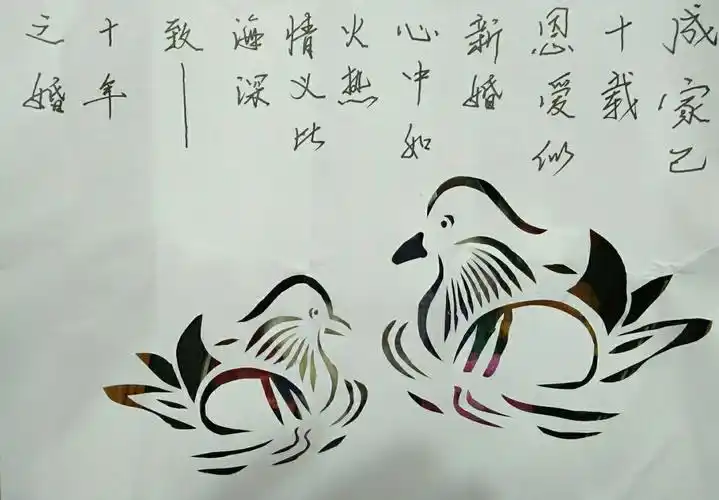 成家已
十载
恩爱似
新婚
心中如
火热
情义比
海深
致——
十年
之婚